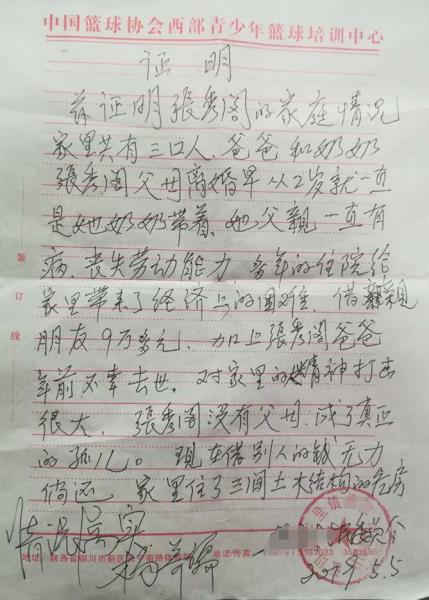 中国篮球协会西部青少年篮球培训中心
证明
兹证明張秀阁的家庭情况
家里共有三口人、爸爸和奶奶
張秀阁父母离婚早从2岁就一直
是她奶奶带着、她父親一直有
病、丧失劳动能力 多年的住院给
家里带来了经济上的困难、借親
朋友9万多元、加上張秀阁爸爸
年前不幸去世、对家里的精神打击
很大、張秀阁没有父母、成了真正
的孤儿。现在借别人的钱无力
偿还 家里住了三间土木结构的危房
情况属实
地址:陕西省铜川市新区 电话/传真: 3583656
2019.5.5
装订线